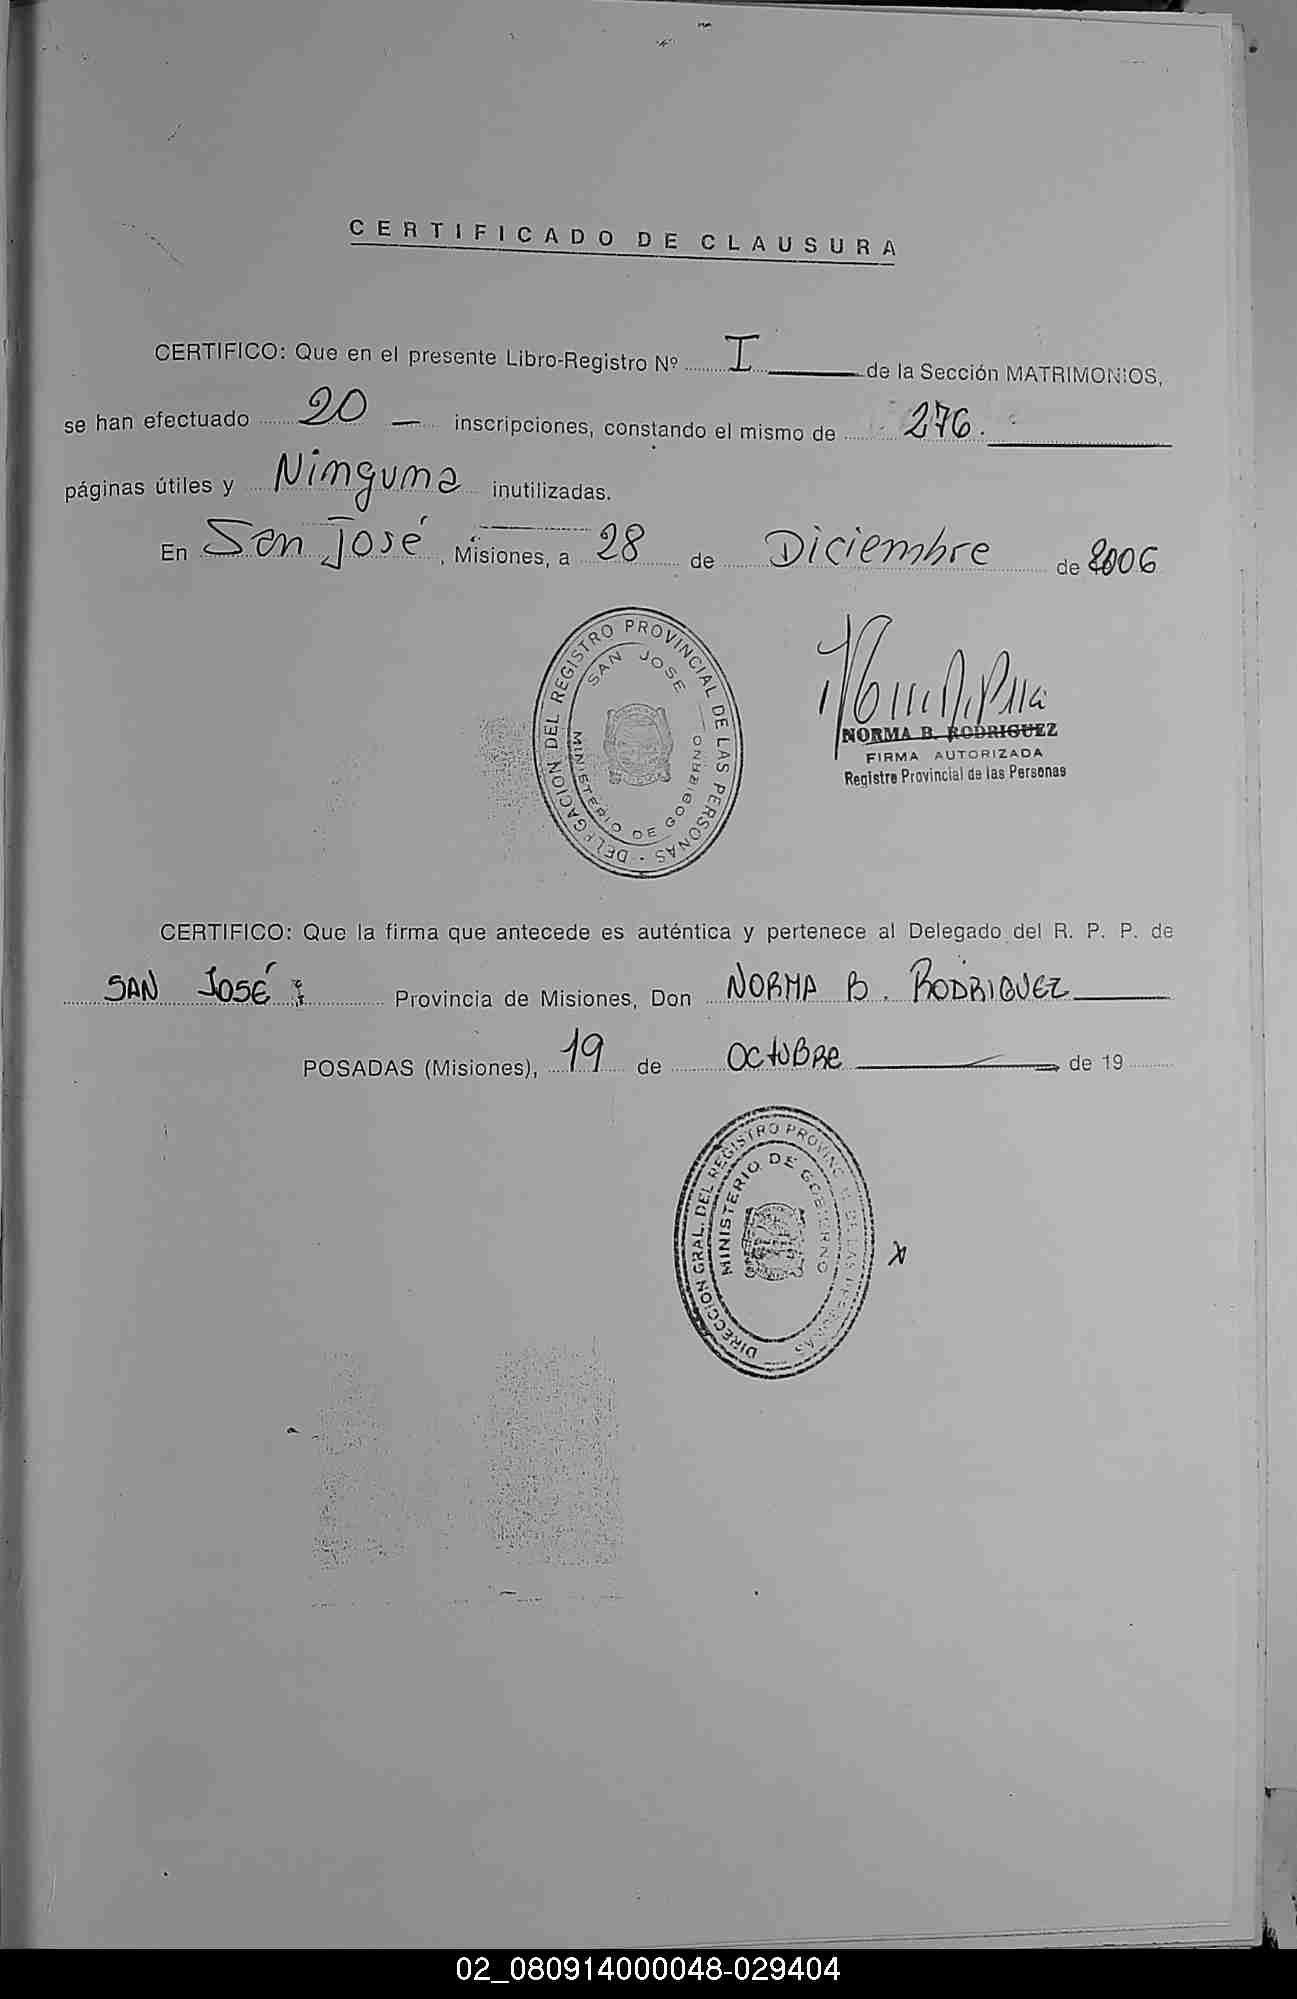 CERTIFICADO DE CLAUSURA
CERTIFICO: Que en el presente Libro-Registro Nº I de la Sección MATRIMONIOS,
se han efectuado 20 — inscripciones, constando el mismo de 276.
páginas útiles y Ninguna inutilizadas.
En San José, Misiones, a 28 de Diciembre de 2006
DELEGACION DEL REGISTRO PROVINCIAL DE LAS PERSONAS -
SAN JOSE
MINISTERIO DE GOBIERNO
NORMA B. RODRIGUEZ
FIRMA AUTORIZADA
Registro Provincial de las Personas
CERTIFICO: Que la firma que antecede es auténtica y pertenece al Delegado del R. P. P. de
SAN JOSÉ Provincia de Misiones, Don NORMA B. RODRIGUEZ
POSADAS (Misiones), 19 de OCTUBRE de 19
DIRECCION GRAL. DEL REGISTRO PROVINCIAL DE LAS PERSONAS
MINISTERIO DE GOBIERNO
02_080914000048-029404